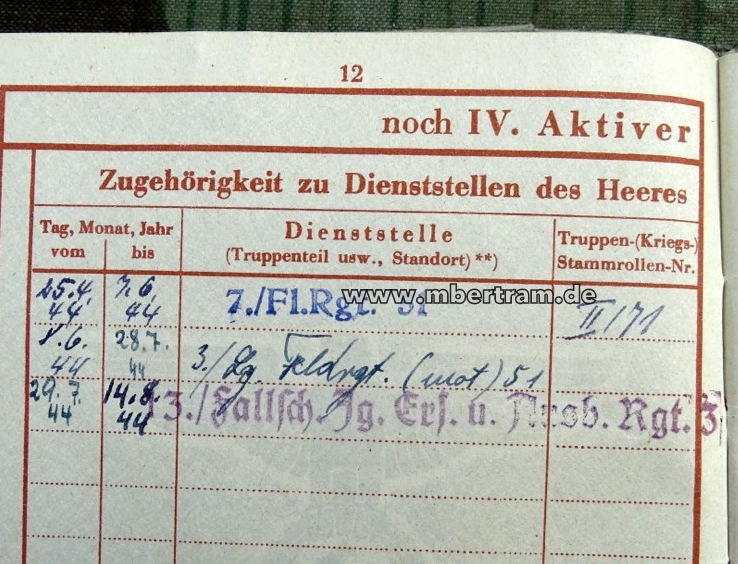 12
noch IV. Aktiver
Zugehörigkeit zu Dienststellen des Heeres
Tag, Monat, Jahr
vom bis
Dienststelle
(Truppenteil usw., Standort)**)
Truppen-(Kriegs-)
Stammrollen-Nr.
25.4. 44 7.6. 44 7./Fl.Rgt. 51 II/71
www.mbertram.de
8.6. 44 28.7. 44 3./Lg. Feldrgt. (mot) 51
29.7. 44 14.8. 44 3./Fallsch. Jg. Ers. u. Ausb. Rgt. 3